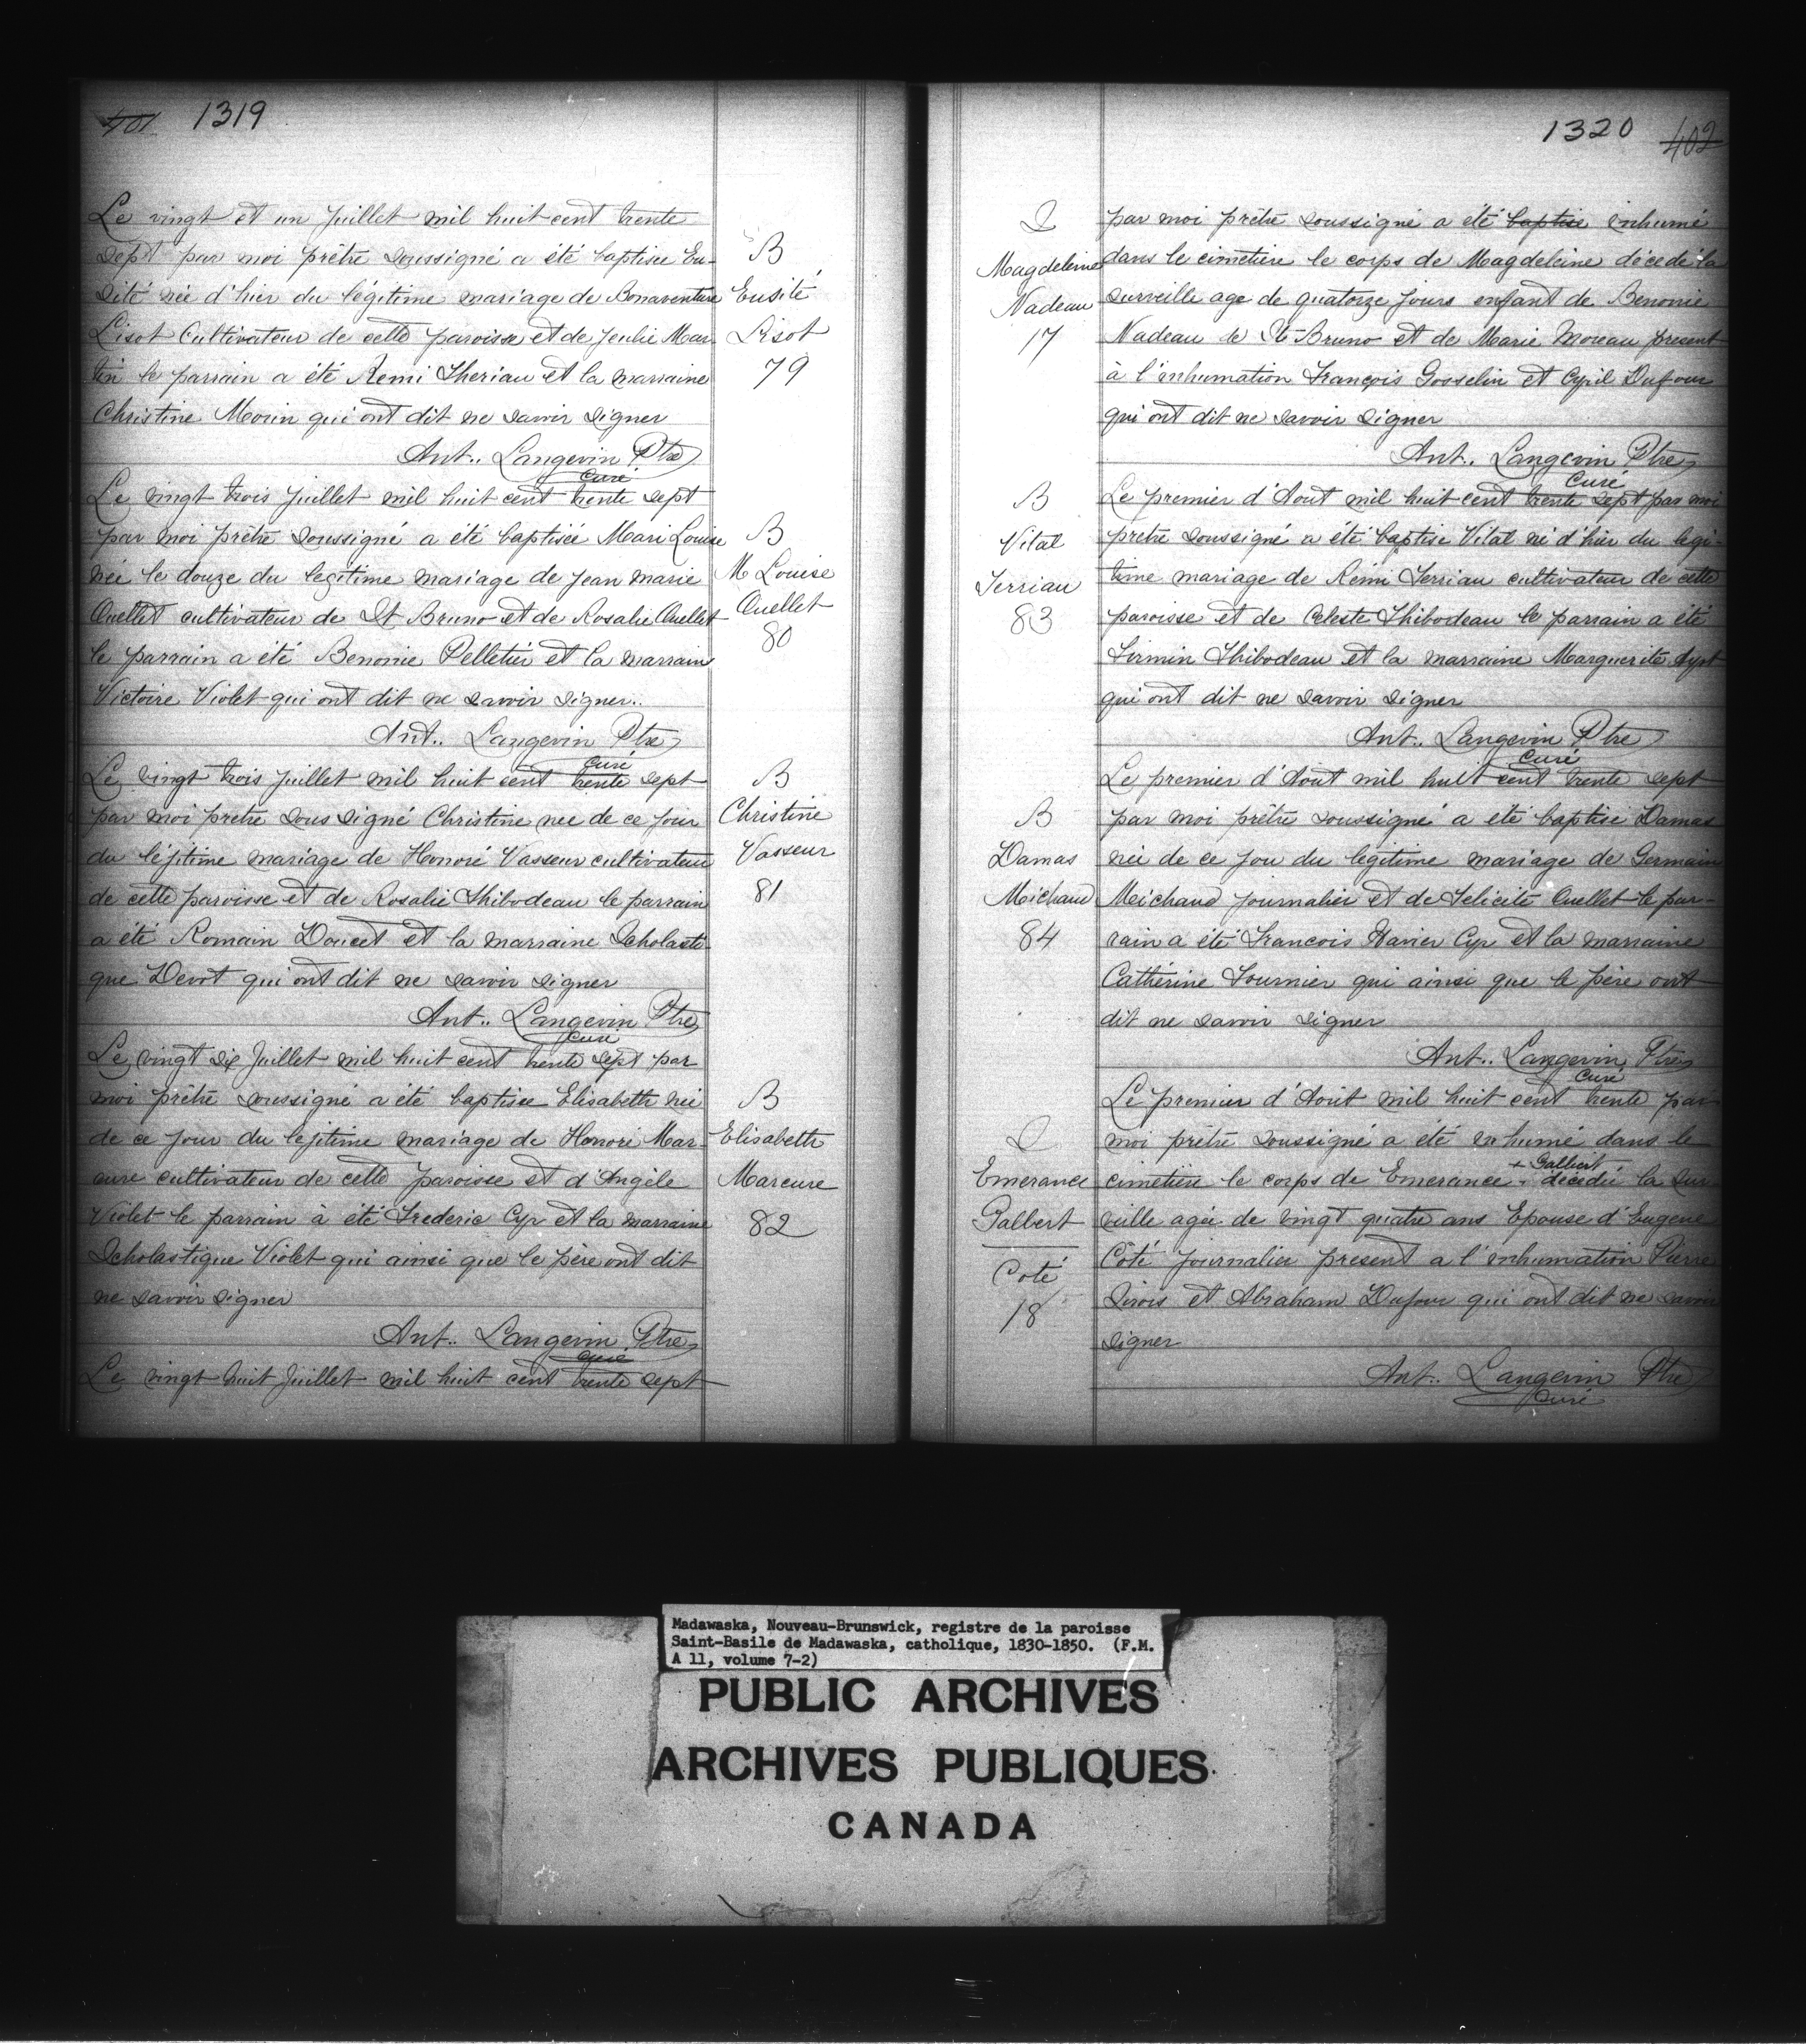 401 1319
Le vingt et un Juillet mil huit cent trente
sept par moi prêtre soussigné a été baptisée Eu-
sité née d'hier du légitime mariage de Bonaventure
Lisot Cultivateur de cette paroisse et de Julie Mar-
tin le parrain a été Remi Theriau et la marraine
Christine Morin qui ont dit ne savoir signer
Ant.. Langevin Ptre
Curé
B
Eusité
Lisot
79
Le vingt trois Juillet mil huit cent trente sept
par moi prêtre soussigné a été baptisée Mari Louise
née le douze du legitime mariage de Jean marie
Ouellet cultivateur de St Bruno et de Rosalie Ouellet
le parrain a été Benonie Pelletier et la marraine
Victoire Violet qui ont dit ne savoir signer..
Ant.. Langevin Ptre
Curé
B
M Louise
Ouellet
80
Le vingt trois Juillet mil huit cent trente sept
par moi prêtre sous signé Christine nee de ce jour
du léjitime mariage de Honoré Vasseur cultivateur
de cette paroisse et de Rosalie Thibodeau le parrain
a été Romain Doucet et la marraine Scholasti-
que Devot qui ont dit ne savoir signer
Ant.. Langevin Ptre
Curé
B
Christine
Vasseur
81
Le vingt six Juillet mil huit cent trente sept par
moi prêtre soussigné a été baptisee Elisabeth née
de ce jour du lejitime mariage de Honoré Mar-
cure cultivateur de cette paroisse et d'Angèle
Violet le parrain à été Frederic Cyr et la marraine
Scholastique Violet qui ainsi que le père ont dit
ne savoir signer
Ant.. Langevin Ptre
Curé
B
Elisabeth
Marcure
82
Le vingt huit Juillet mil huit cent trente sept
1320 402
S
Magdeleine
Nadeau
17
par moi prêtre soussigné a été baptise inhumé
dans le cimetiere le corps de Magdeleine décedé la
surveille age de quatorze jours enfant de Benonie
Nadeau de St-Bruno et de Marie Moreau present
à l'inhumation François Gosselin et Cyril Dufour
qui ont dit ne savoir signer
Ant.. Langevin Ptre
Curé
B
Vital
Terriau
83
Le premier d'Aout mil huit cent trente sept par moi
prêtre soussigné a été baptisé Vital né d'hier du legi-
time mariage de Rémi Terriau cultivateur de cette
paroisse et de Celeste Thibodeau le parrain a été
Firmin Thibodeau et la marraine Marguerite Ayot
qui ont dit ne savoir signer
Ant.. Langevin Ptre
Curé
B
Damas
Michaud
84
Le premier d'Aout mil huit cent trente sept
par moi prêtre soussigné a été baptisé Damas
né de ce jou du legitime mariage de Germain
Michaud journalier et de Felicité Ouellet le par-
rain a été Francois Xavier Cyr et la marraine
Cathérine Fournier qui ainsi que le père ont
dit ne savoir signer
Ant.. Langevin Ptre
Curé
S
Emerance
Galbert
Coté
18
Le premier d'Aoüt mil huit cent trente par
moi prêtre soussigné a été enhumé dans le
+ Galbert
cimetière le corps de Emerance + décedée la sur
veille agée de vingt quatre ans Epouse d'Eugene
Côté journalier present a l'enhumation Pierre
Sirois et Abraham Dufour qui ont dit ne savoir
signer
Ant.. Langevin Ptre
Curé
Madawaska, Nouveau-Brunswick, registre de la paroisse
Saint-Basile de Madawaska, catholique, 1830-1850. (F.M.
A 11, volume 7-2)
PUBLIC ARCHIVES
ARCHIVES PUBLIQUES
CANADA